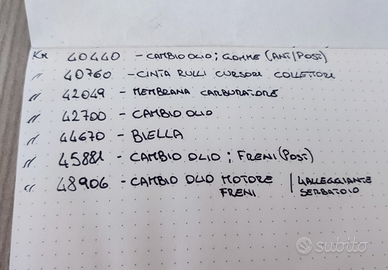 Km 40440 - CAMBIO OLIO; GOMME (ANT/POST)
" 40760 - CINTA RULLI CURSORI COLLETTORI
" 42049 - MEMBRANA CARBURATORE
" 42700 - CAMBIO OLIO
" 44670 - BIELLA
" 45881 - CAMBIO OLIO; FRENI (POST)
" 48906 - CAMBIO OLIO MOTORE / GALLEGGIANTE
FRENI SERBATOIO
subito